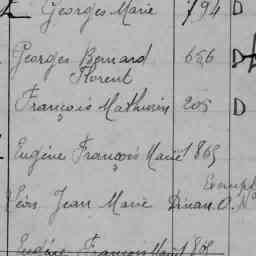 Georges Marie 794 D
Georges Bernard 656 D
Florent
François Mathurin 205 D
Eugène François Marie 1865
Léon Jean Marie Dinan O. N°
Eugène François Marie 18